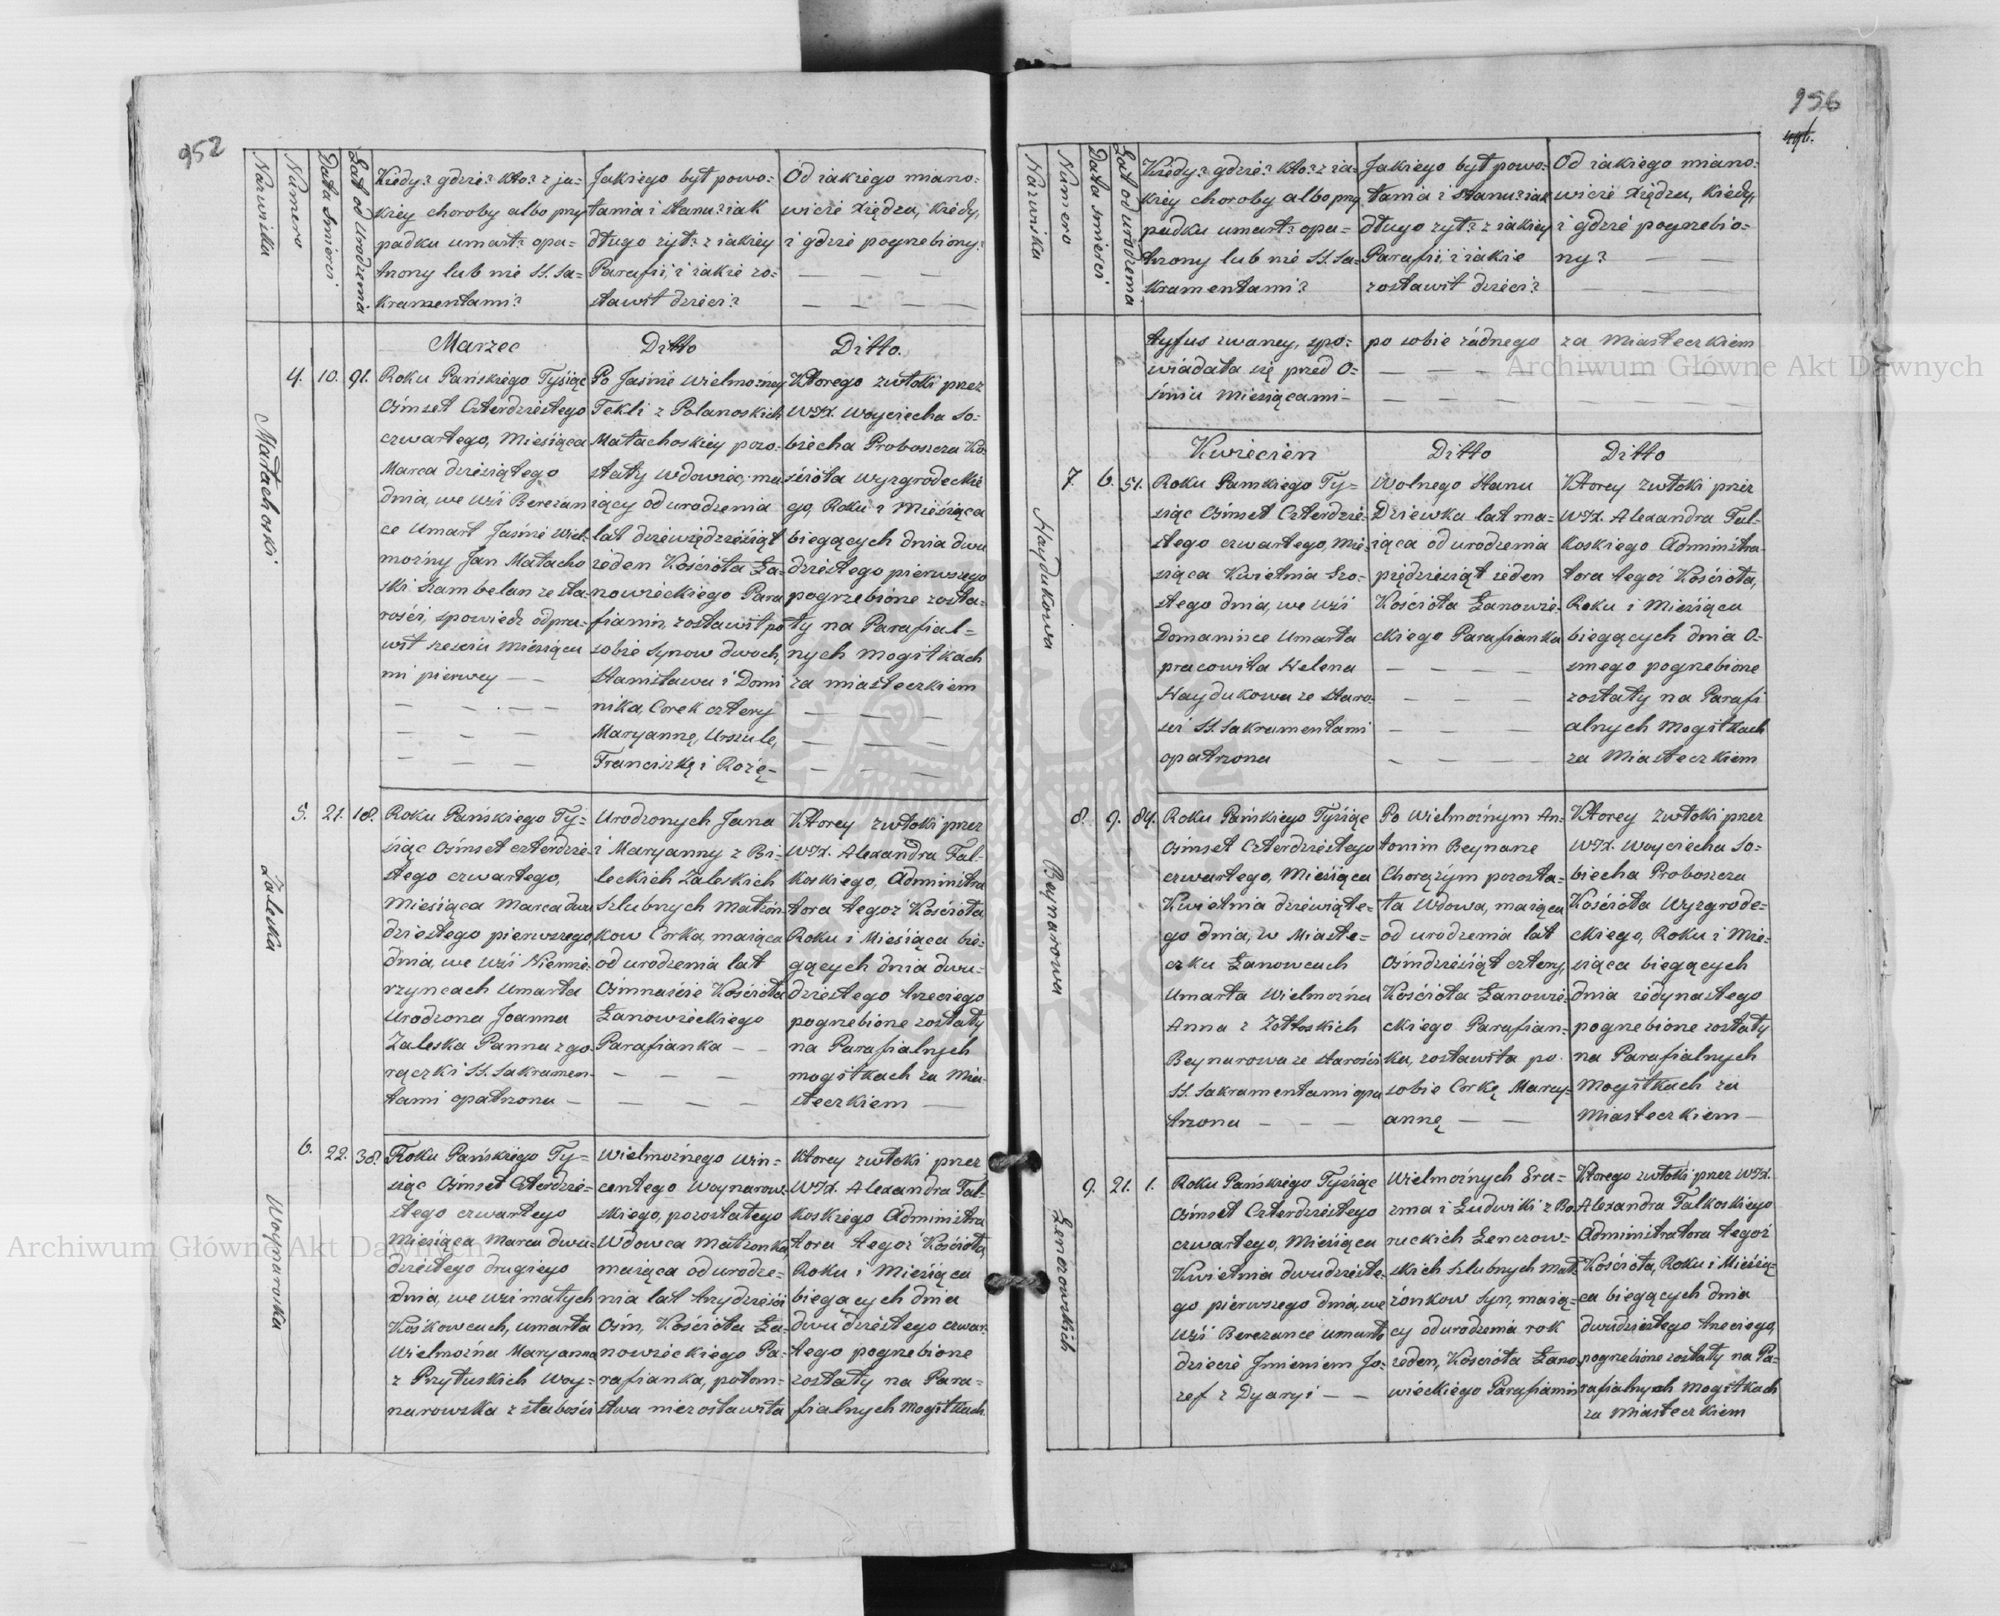 952
Nazwiska
Numero
Data Smierci
Lat od Urodzenia
Kiedy? gdzie? kto? z ja=
kiey choroby albo przy
padku umarł? opa=
trzony lub nie SS. Sa=
kramentami?
Jakiego był powo=
łania i stanu? iak
długo żył? z iakiey
Parafii, i iakie zo=
stawił dzieci?
Od iakiego miano=
wicie Xiędza, kiedy,
i gdzie pogrzebiony?
Marzec
Ditto
Ditto.
Małachoski
4. 10. 91.
Roku Pańskiego Tysiąc
Ośmset Czterdziestego
czwartego, Miesiąca
Marca dziesiątego
dnia, we wśi Berezan
ce umarł Jaśnie Wiel=
możny Jan Małacho
ski Szambelan ze sta=
rości, spowiedz odpra=
wił sześciu Miesiąca
mi pierwey
Po Jaśnie Wielmożney
Tekli z Polanoskich
Małachoskiey pozo=
stały Wdowiec, ma
iący od urodzenia
lat dziewiędziesiąt
ieden Kościoła Ła=
nowieckiego Para
fianin, zostawił po
sobie Synow dwoch,
Stanisława i Domi
nika, Corek cztery
Maryannę, Urszulę,
Franciszkę i Rożę
Ktorego zwłoki przez
WJX. Woyciecha So=
biecha Proboszcza Ko
ścioła Wyzgrodeckie
go, Roku i Miesiąca
biegących dnia dwu
dziestego pierwszego
pogrzebione zosta=
ły na Parafial=
nych Mogiłkach
za miasteczkiem
Zaleska
5. 21. 18.
Roku Pańskiego Ty=
siąc Ośmset czterdzie=
stego czwartego,
Miesiąca Marca dwu
dziestego pierwszego,
dnia, we wśi Niemie=
rzyncach umarła
Urodzona Joanna
Zaleska Panna z go=
rączki SS. Sakramen=
tami opatrzona
Urodzonych Jana
i Maryanny z Bi=
leckich Zaleskich
Szlubnych Małżon
kow Corka, maiąca
od urodzenia lat
Osmnaście Kościoła
Łanowieckiego
Parafianka
Ktorey zwłoki przez
WJX. Alexandra Fal=
koskiego, Administra
tora tegoż Kościoła
Roku i Miesiąca bie=
gących dnia dwu=
dziestego trzeciego
pogrzebione zostały
na Parafialnych
mogiłkach za Mia=
steczkiem
Woynarowska
6. 22. 38.
Roku Pańskiego Ty=
siąc Osmset Czterdzie=
stego czwartego
Miesiąca Marca dwu=
dziestego drugiego
dnia, we wśi małych
Kośkowcach, umarła
Wielmożna Maryanna
z Przyłuskich Woy=
narowska z słabości
Wielmożnego Win=
centego Woynarow=
skiego, pozostałego
Wdowca Małżonka
maiąca od urodze=
nia lat trzydzieści
Osm, Kościoła Ła=
nowieckiego Pa=
rafianka, potom=
stwa niezostawiła
Ktorey zwłoki przez
WJX. Alexandra Fal=
koskiego Administra
tora tegoż Kościoła
Roku i Miesiąca
biegących dnia
dwudziestego czwar=
tego pogrzebione
zostały na Para=
fialnych Mogiłkach
956
Nazwiska
Numero
Data śmierci
Lat od urodzenia
Kiedy? gdzie? kto? z ia=
kiey choroby albo przy
padku umarł? opa=
trzony lub nie SS. Sa=
kramentami?
Jakiego był powo=
łania i stanu? iak
długo żył? z iakiey
Parafii i iakie
zostawił dzieci?
Od iakiego miano=
wicie Xiędza, kiedy,
i gdzie pogrzebio=
ny?
tyfus zwaney, spo=
wiadała się przed O=
śmiu Miesiącami
po sobie żadnego
za Miasteczkiem
Kwiecien
Ditto
Ditto
Haydukowa
7. 6. 51.
Roku Panskiego Ty=
siąc Ośmset Czterdzie=
stego czwartego, Mie=
siąca Kwietnia Szo=
stego dnia, we wśi
Domanince umarła
pracowita Helena
Haydukowa ze staro=
ści SS. Sakramentami
opatrzona
Wolnego stanu
Dziewka lat ma=
iąca od urodzenia
pięćdziesiąt ieden
Kościoła Łanowie=
ckiego Parafianka
Ktorey zwłoki przez
WJX. Alexandra Fal=
koskiego Administra=
tora tegoż Kościoła,
Roku i Miesiąca
biegących dnia O=
smego pogrzebione
zostały na Parafi
alnych Mogiłkach
za Miasteczkiem
Beynarowa
8. 9. 84.
Roku Pańskiego Tysiąc
Ośmset Czterdziestego
czwartego, Miesiąca
Kwietnia dziewiąte=
go dnia, w Miaste=
czku Łanowcach
umarła Wielmożna
Anna z Żołtoskich
Beynarowa ze starości
SS. Sakramentami opa
trzona
Po Wielmożnym An=
tonim Beynarze
Chorążym pozosta=
ła Wdowa, maiąca
od urodzenia lat
Ośmdziesiąt cztery,
Kościoła Łanowie=
ckiego Parafian=
ka, zostawiła po
sobie Corkę Mary=
annę
Ktorey zwłoki przez
WJX. Woyciecha So=
biecha Proboszcza
Kościoła Wyzgrode=
ckiego, Roku i Mie=
siąca biegących
dnia iedynastego
pogrzebione zostały
na Parafialnych
Mogiłkach za
Miasteczkiem
Lenczowskich
9. 21. 1.
Roku Pańskiego Tysiąc
Ośmset Czterdziestego
czwartego, Miesiąca
Kwietnia dwudzieste=
go pierwszego dnia, we
wśi Berezance umarło
dziecie Jmieniem Jo=
zef z Dyaryi
Wielmożnych Era=
zma i Ludwiki z Bo
ruckich Lenczow=
skich Szlubnych Mał=
żonkow Syn, maią=
cy od urodzenia rok
ieden, Kościoła Łano
wieckiego Parafianin
Ktorego zwłoki przez WJX.
Alexandra Falkoskiego
Administratora tegoż
Kościoła, Roku i Miesią=
ca biegących dnia
dwudziestego trzeciego,
pogrzebione zostały na Pa=
rafialnych Mogiłkach
za Miasteczkiem
Archiwum Główne Akt Dawnych
Archiwum Główne Akt Dawnych